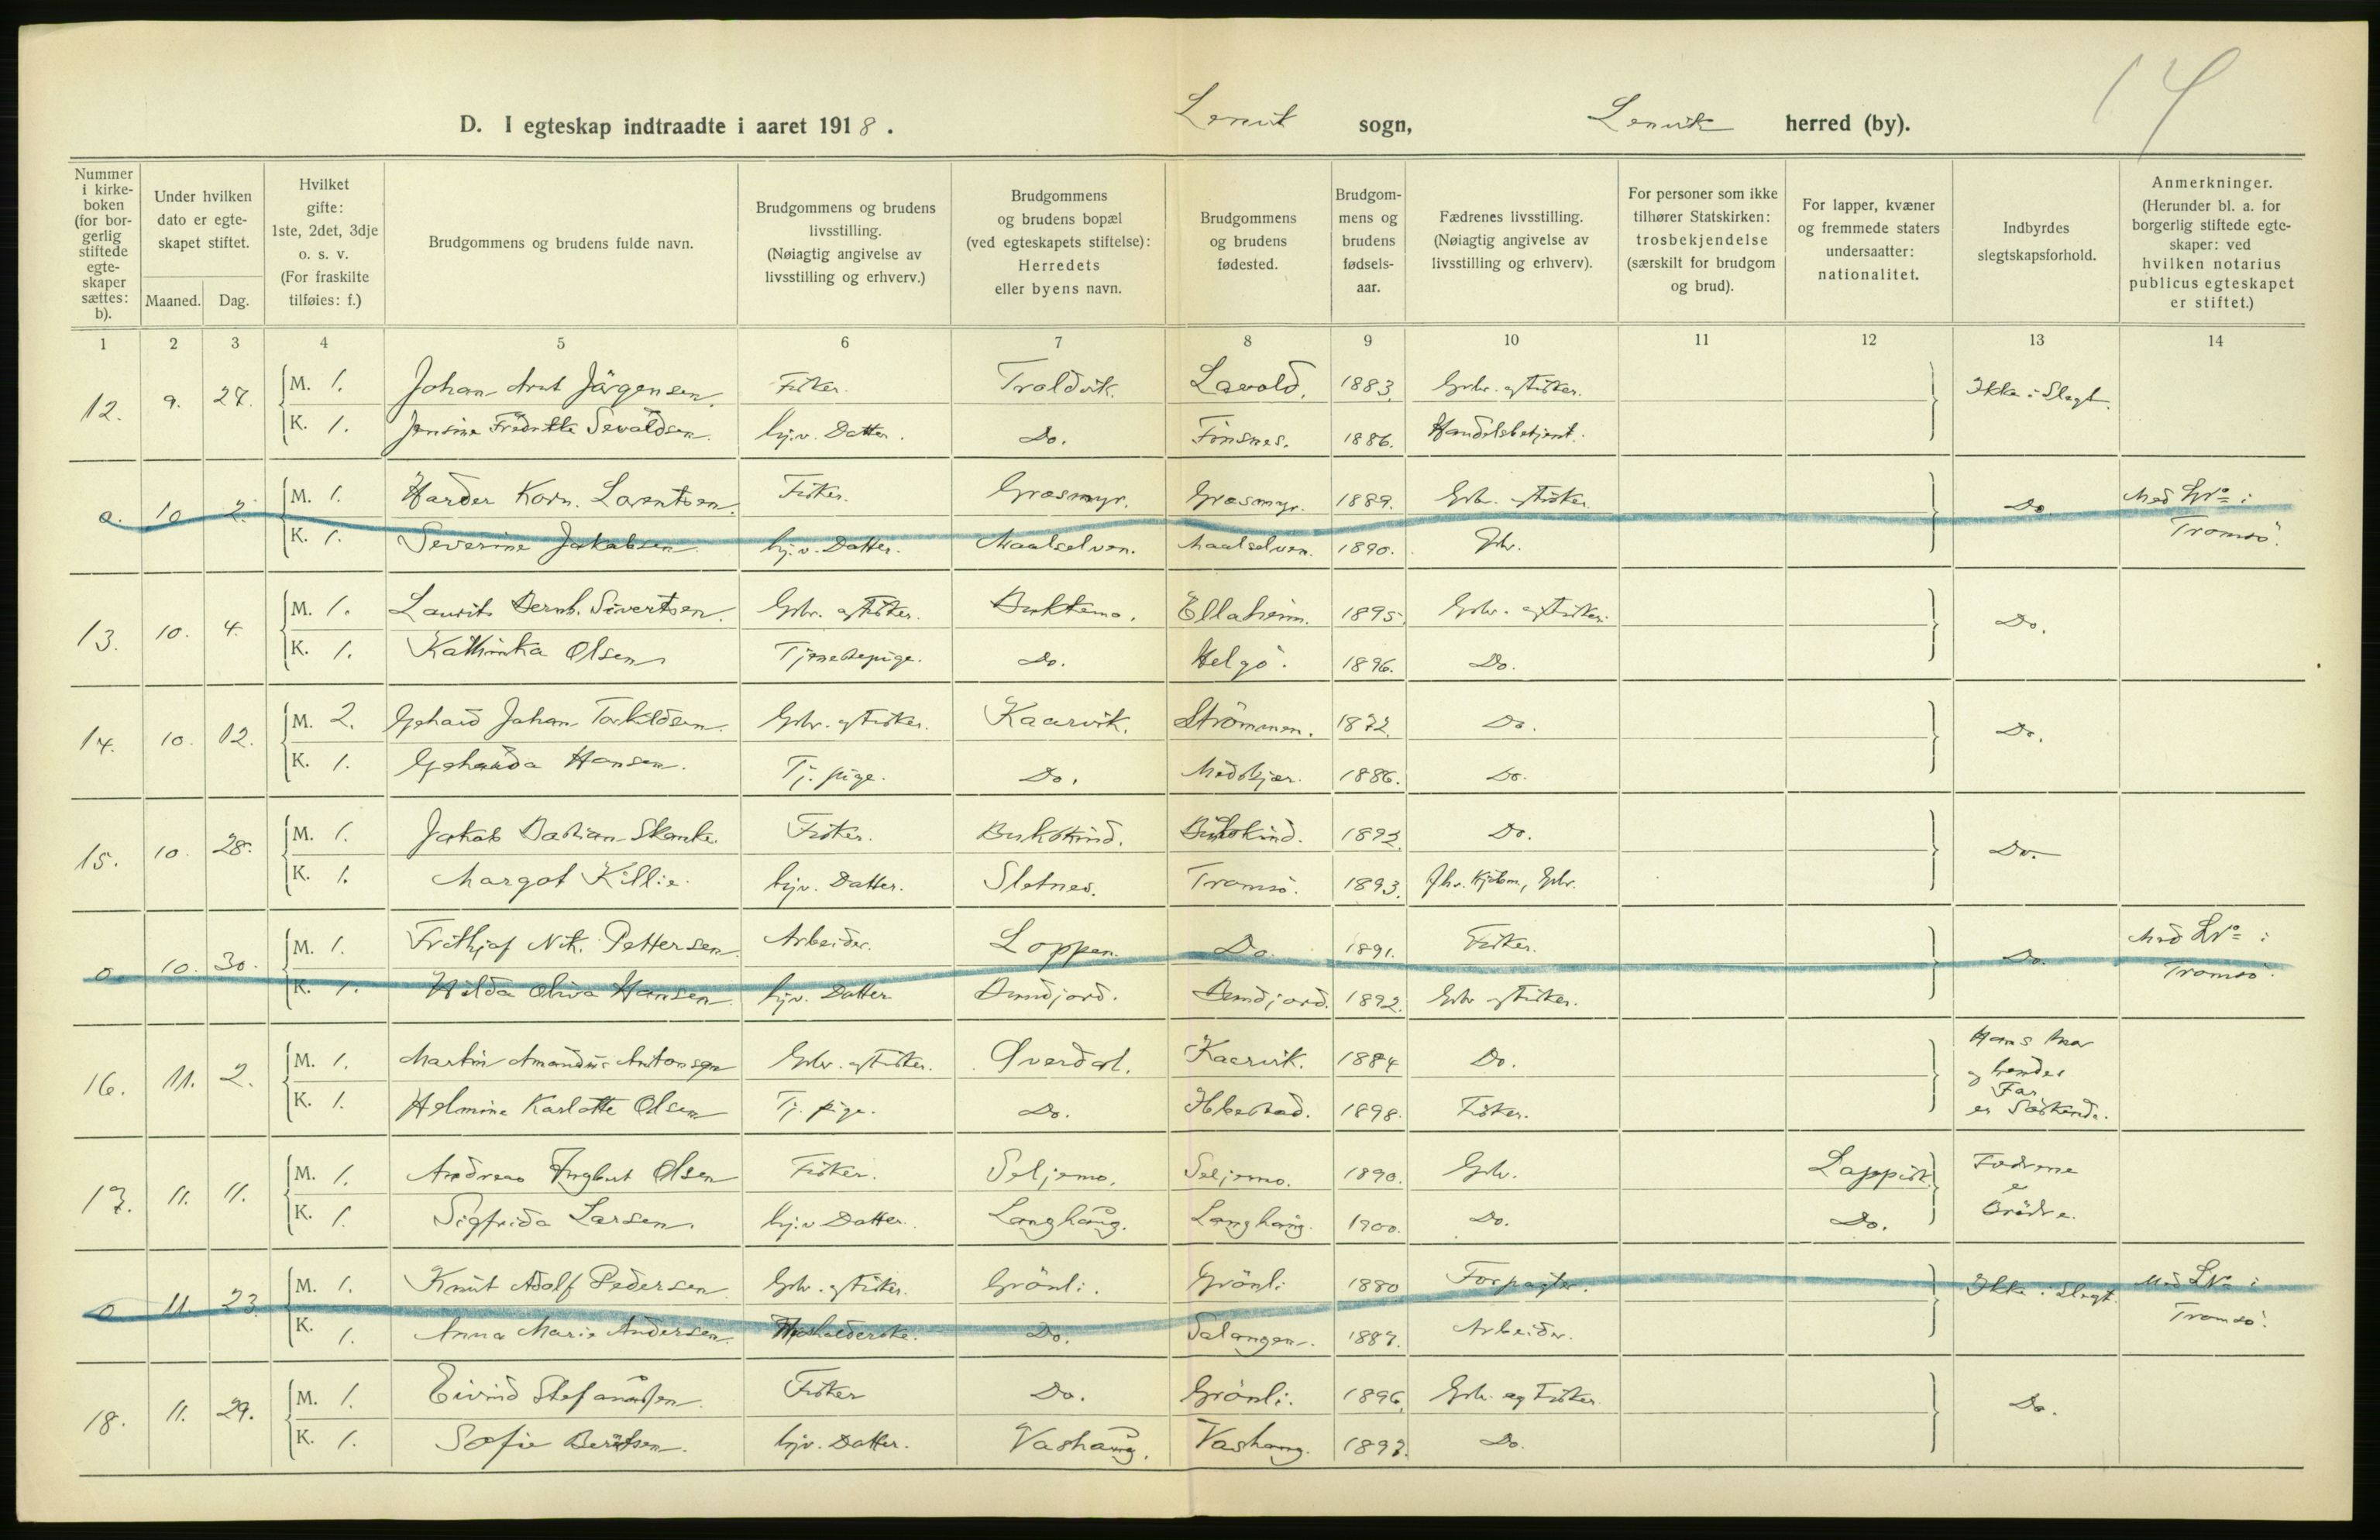 14
D. I egteskap indtraadte i aaret 1918. Lenvik sogn, Lenvik herred (by).
Nummer i kirkeboken (for borgerlig stiftede egteskaper sættes: b).
Under hvilken dato er egteskapet stiftet.
Maaned. Dag.
Hvilket gifte: 1ste, 2det, 3dje o. s. v. (For fraskilte tilføies: f.)
Brudgommens og brudens fulde navn.
Brudgommens og brudens livsstilling. (Nøiagtig angivelse av livsstilling og erhverv.)
Brudgommens og brudens bopæl (ved egteskapets stiftelse): Herredets eller byens navn.
Brudgommens og brudens fødested.
Brudgommens og brudens fødselsaar.
Fædrenes livsstilling. (Nøiagtig angivelse av livsstilling og erhverv).
For personer som ikke tilhører Statskirken: trosbekjendelse (særskilt for brudgom og brud).
For lapper, kvæner og fremmede staters undersaatter: nationalitet.
Indbyrdes slegtskapsforhold.
Anmerkninger. (Herunder bl. a. for borgerlig stiftede egteskaper: ved hvilken notarius publicus egteskapet er stiftet.)
1 2 3 4 5 6 7 8 9 10 11 12 13 14
12. 9. 27. M. 1. Johan Arnt Jörgensen. Fisker. Troldvik. Lavold. 1883. Grbr. og Fisker. Ikke i Slegt.
K. 1. Jensine Fredrikke Sevaldsen. hjv. Datter. Do. Finsnes. 1886. Handelsbetjent.
0. 10. 2. M. 1. Harder Korn. Lorentsen. Fisker. Grasmyr. Grasmyr. 1889. Grbr. og Fisker. Do. Med No i
K. 1. Severine Jakobsen hjv. Datter. Maalselven. Maalselven. 1890. Grbr. Tromsö.
13. 10. 4. M. 1. Laurits Bernh. Sivertsen. Grbr. og Fisker. Buktemo. Ellaheim. 1895. Grbr. og Fisker. Do.
K. 1. Kathinka Olsen Tjenestepige. Do. Helgö. 1896. Do.
14. 10. 12. M. 2. Gehard Johan Torkildsen. Grbr. og Fisker. Kaarvik. Strömmen. 1872. Do. Do.
K. 1. Geharda Hansen. Tj. pige. Do. Medskjær. 1886. Do.
15. 10. 28. M. 1. Jakob Bastian Skanke. Fisker. Bukskind. Bukskind. 1892. Do. Do.
K. 1. Margot Killie. hjv. Datter. Sletnes. Tromsö. 1893. Grbr.
0 10. 30. M. 1. Frithjof Nik. Pettersen. Arbeider. Loppen. Do. 1891. Fisker. Do. Med No i
K. 1. Hilda Oliva Hansen. hjv. Datter Bundjord. Bundjord. 1892. Grbr og Fisker. Tromsö.
16. 11. 2. M. 1. Martin Amandus Antonsen Grbr. og Fisker. Overdal. Kaarvik. 1884 Do. Hans Mor og hendes Far er Söskende.
K. 1. Helmine Karlotte Olsen Tj. pige. Do. Ibbestad. 1898. Fisker.
17. 11. 11. M. 1. Andreas Ingbert Olsen Fisker. Seljemo. Seljemo. 1890. Grbr. Lappisk Fædrene er Brödre.
K. 1. Sigfrida Larsen. hjv Datter. Langhaug. Langhaug. 1900. Do. Do.
0 11. 23. M. 1. Knut Adolf Pedersen Grbr. og Fisker. Grönli. Grönli 1880 Forpagter. Ikke i Slegt. Med No i
K. 1. Anna Marie Andersen. Husholderske. Do. Salangen. 1887. Arbeider. Tromsö.
18. 11. 29. M. 1. Eivind Stefanussen. Fisker Do. Grönli. 1896. Grbr. og Fisker. Do.
K. 1. Sofie Berntsen. hjv. Datter. Vashaug. Vashaug. 1897. Do.